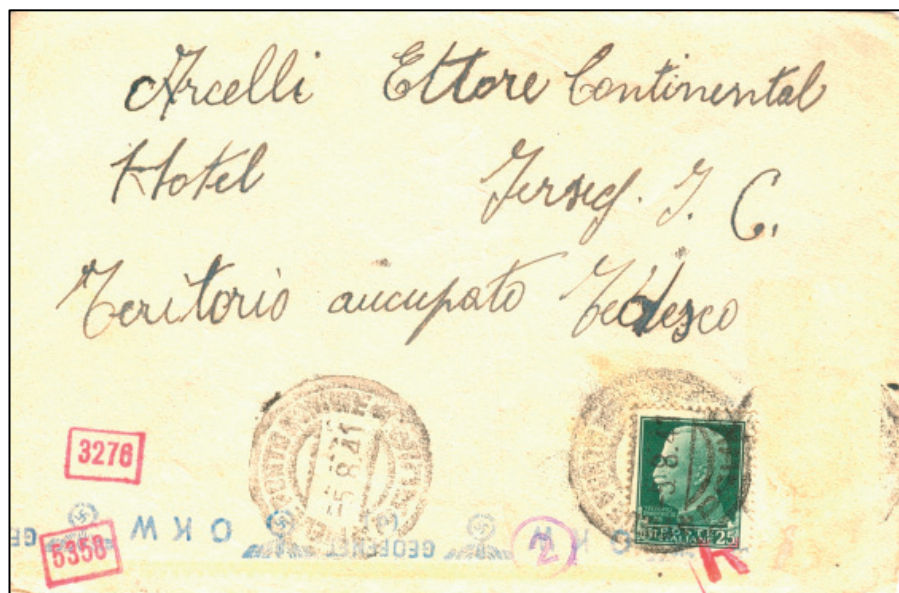 Arcelli Ettore Continental
Hotel Jersey. I. C.
Teritorio aucupato Tedesco
3276
5358
5.8.41
O K W
GEOEFFNET
2
25
R